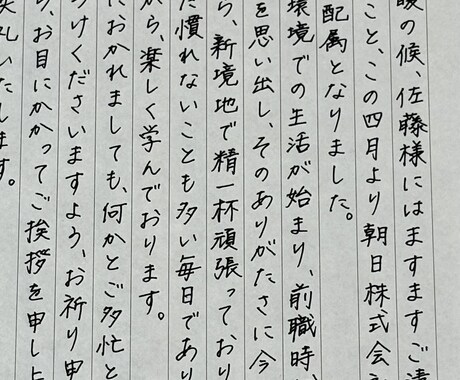 暖の候、佐藤様にはますますご清
こと、この四月より朝日株式会
配属となりました。
環境での生活が始まり、前職時
を思い出し、そのありがたさに今
ら、新境地で精一杯頑張っており
だ慣れないことも多い毎日であり
がら、楽しく学んでおります。
におかれましても、何かとご多忙と
らけくださいますよう、お祈り申
ら、お目にかかってご挨拶を申し上
失礼いたします。